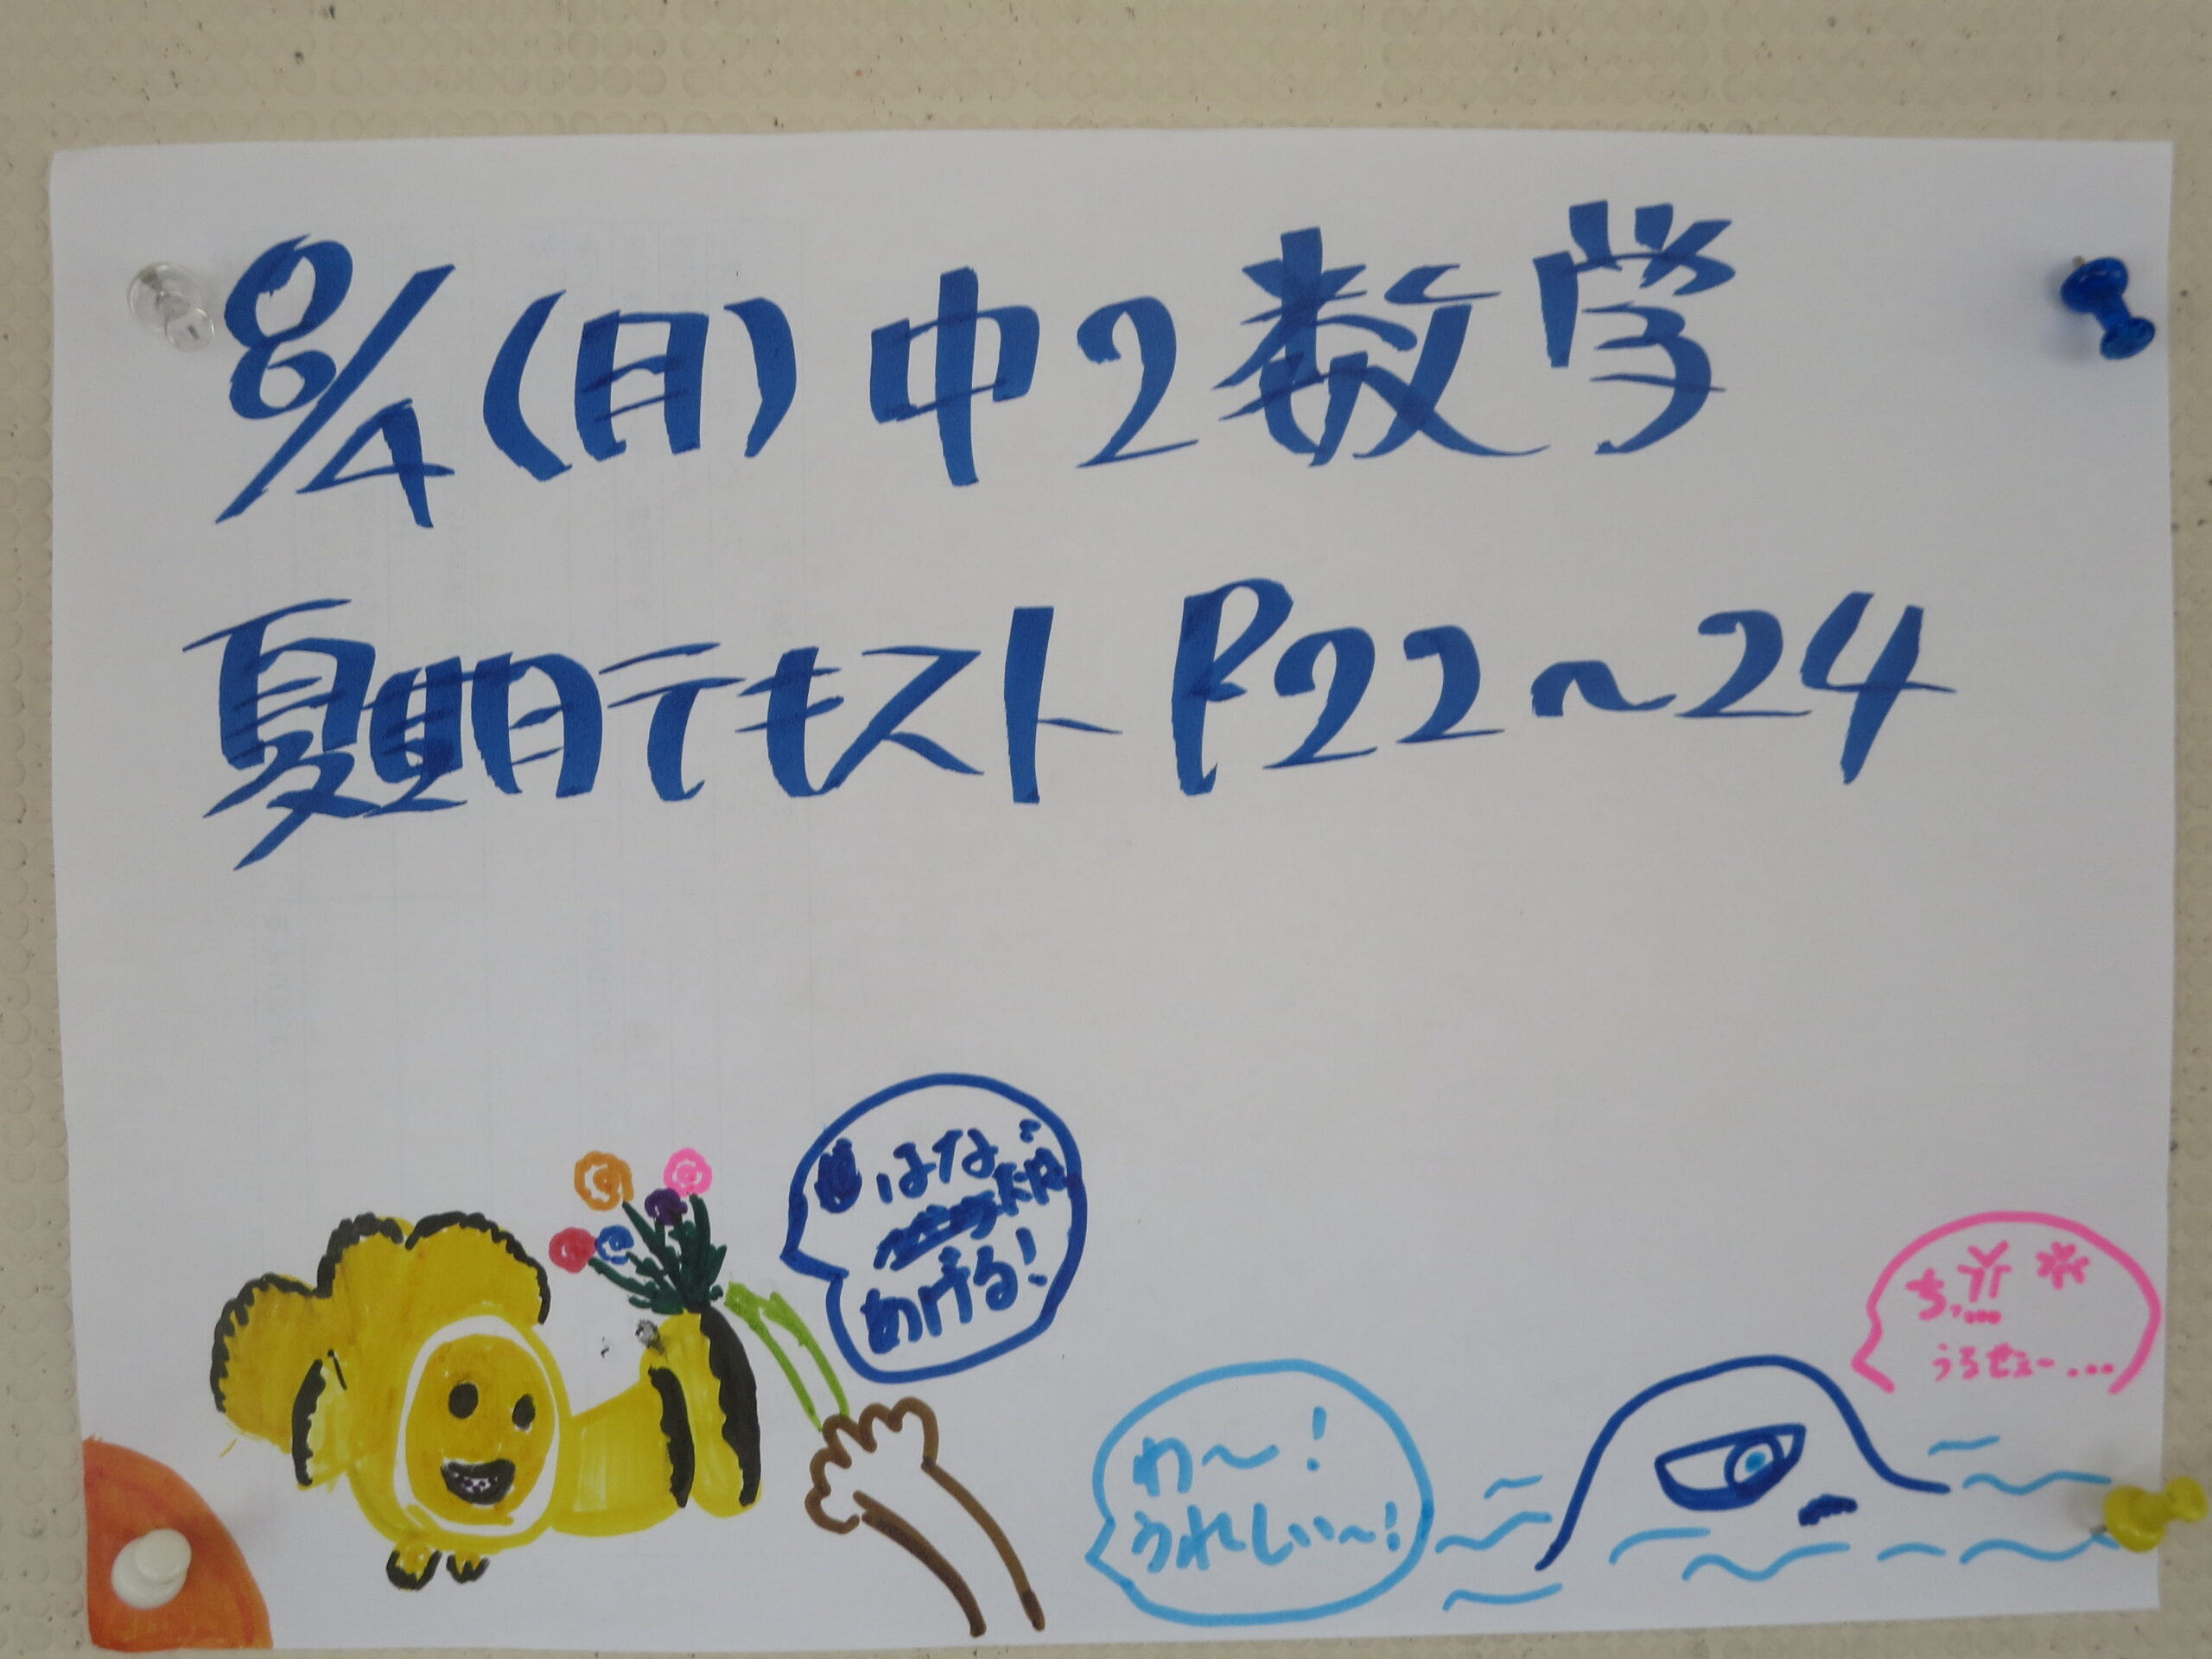 8/4(日) 中2数学
夏期テキスト P22～24
はな
あげる!
わ～!
うれしい～!
ちッ…
うるせェー…